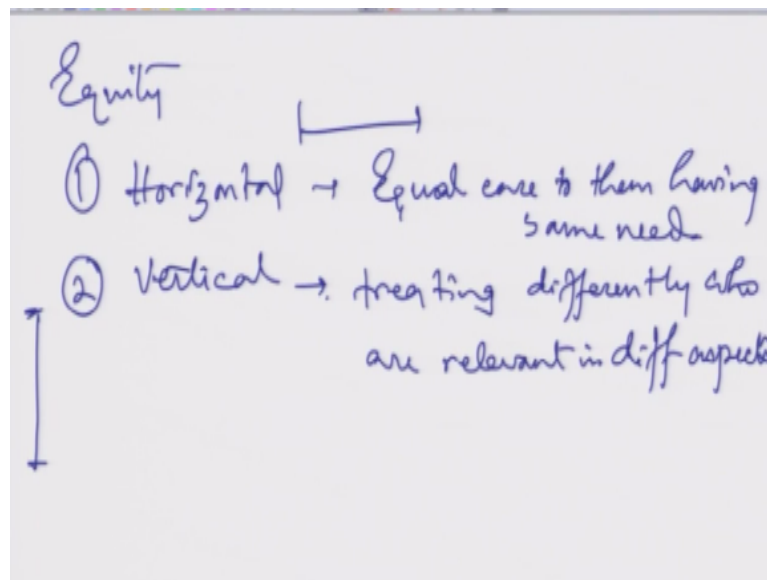 Equity
① Horizontal → Equal care to them having
same need.
② Vertical → treating differently who
are relevant in diff aspects